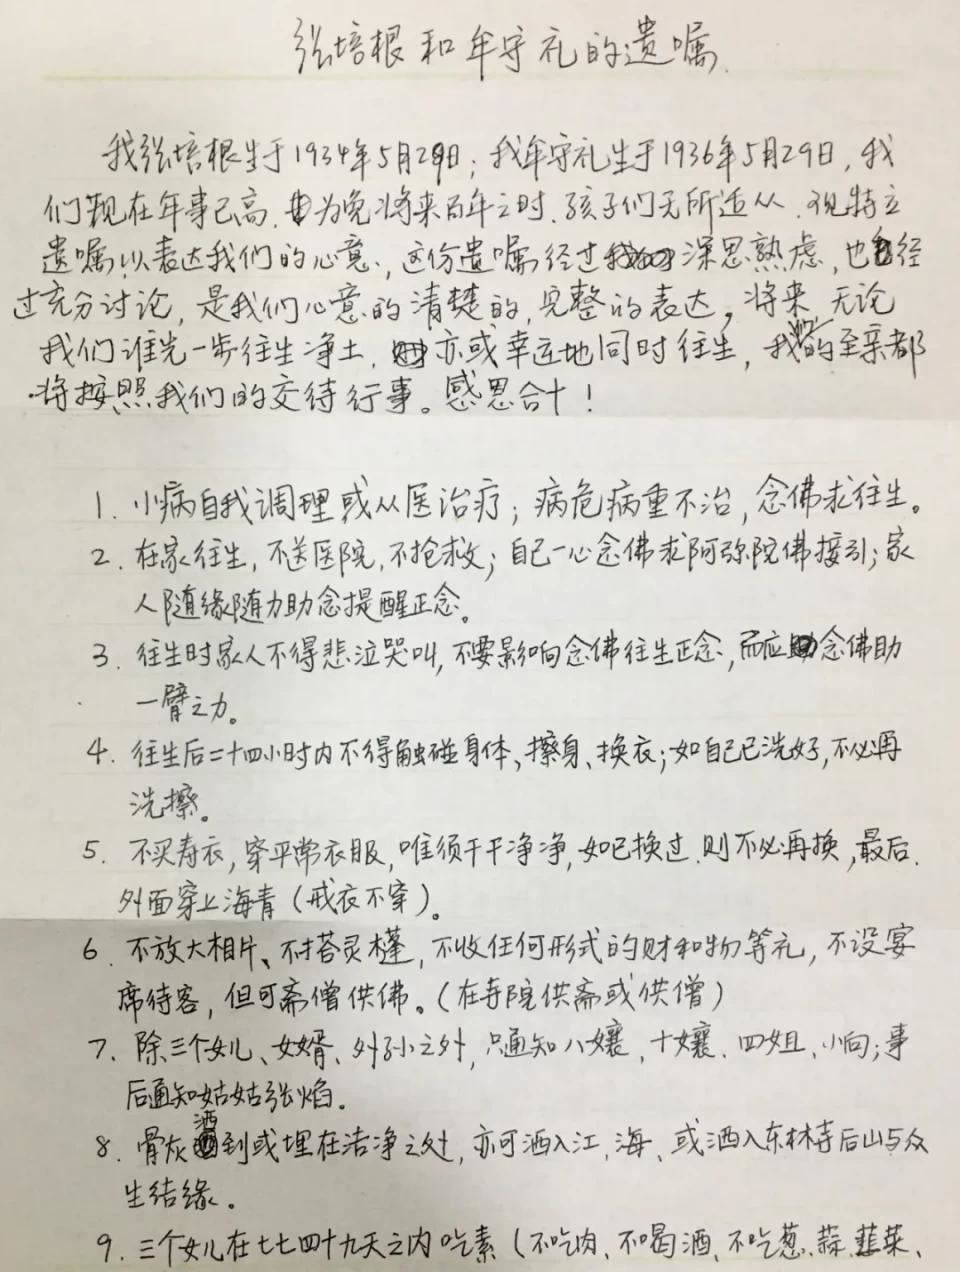 张培根和牟守礼的遗嘱
我张培根生于1934年5月29日；我牟守礼生于1936年5月29日，我
们现在年事已高，为免将来百年之时，孩子们无所适从，现特立
遗嘱以表达我们的心意，这份遗嘱经过深思熟虑，也经
过充分讨论，是我们心意的清楚的，完整的表达。将来无论
我们谁先一步往生净土，亦或幸运地同时往生，我们的至亲都
将按照我们的交待行事。感恩合十！
1. 小病自我调理或从医治疗；病危病重不治，念佛求往生。
2. 在家往生，不送医院，不抢救；自己一心念佛求阿弥陀佛接引；家
人随缘随力助念提醒正念。
3. 往生时家人不得悲泣哭叫，不要影响念佛往生正念，而应念佛助
一臂之力。
4. 往生后二十四小时内不得触碰身体、擦身、换衣；如自己已洗好，不必再
洗擦。
5. 不买寿衣，穿平常衣服，唯须干干净净，如已换过，则不必再换，最后
外面穿上海青（戒衣不穿）。
6. 不放大相片、不搭灵棚，不收任何形式的财和物等礼，不设宴
席待客，但可斋僧供佛。（在寺院供斋或供僧）
7. 除三个女儿、女婿、外孙之外，只通知八孃、十孃、四姐、小向；事
后通知姑姑张焰。
8. 骨灰洒到或埋在洁净之处，亦可洒入江，海、或洒入东林寺后山与众
生结缘。
9. 三个女儿在七七四十九天之内吃素（不吃肉、不喝酒、不吃葱、蒜、韭菜、